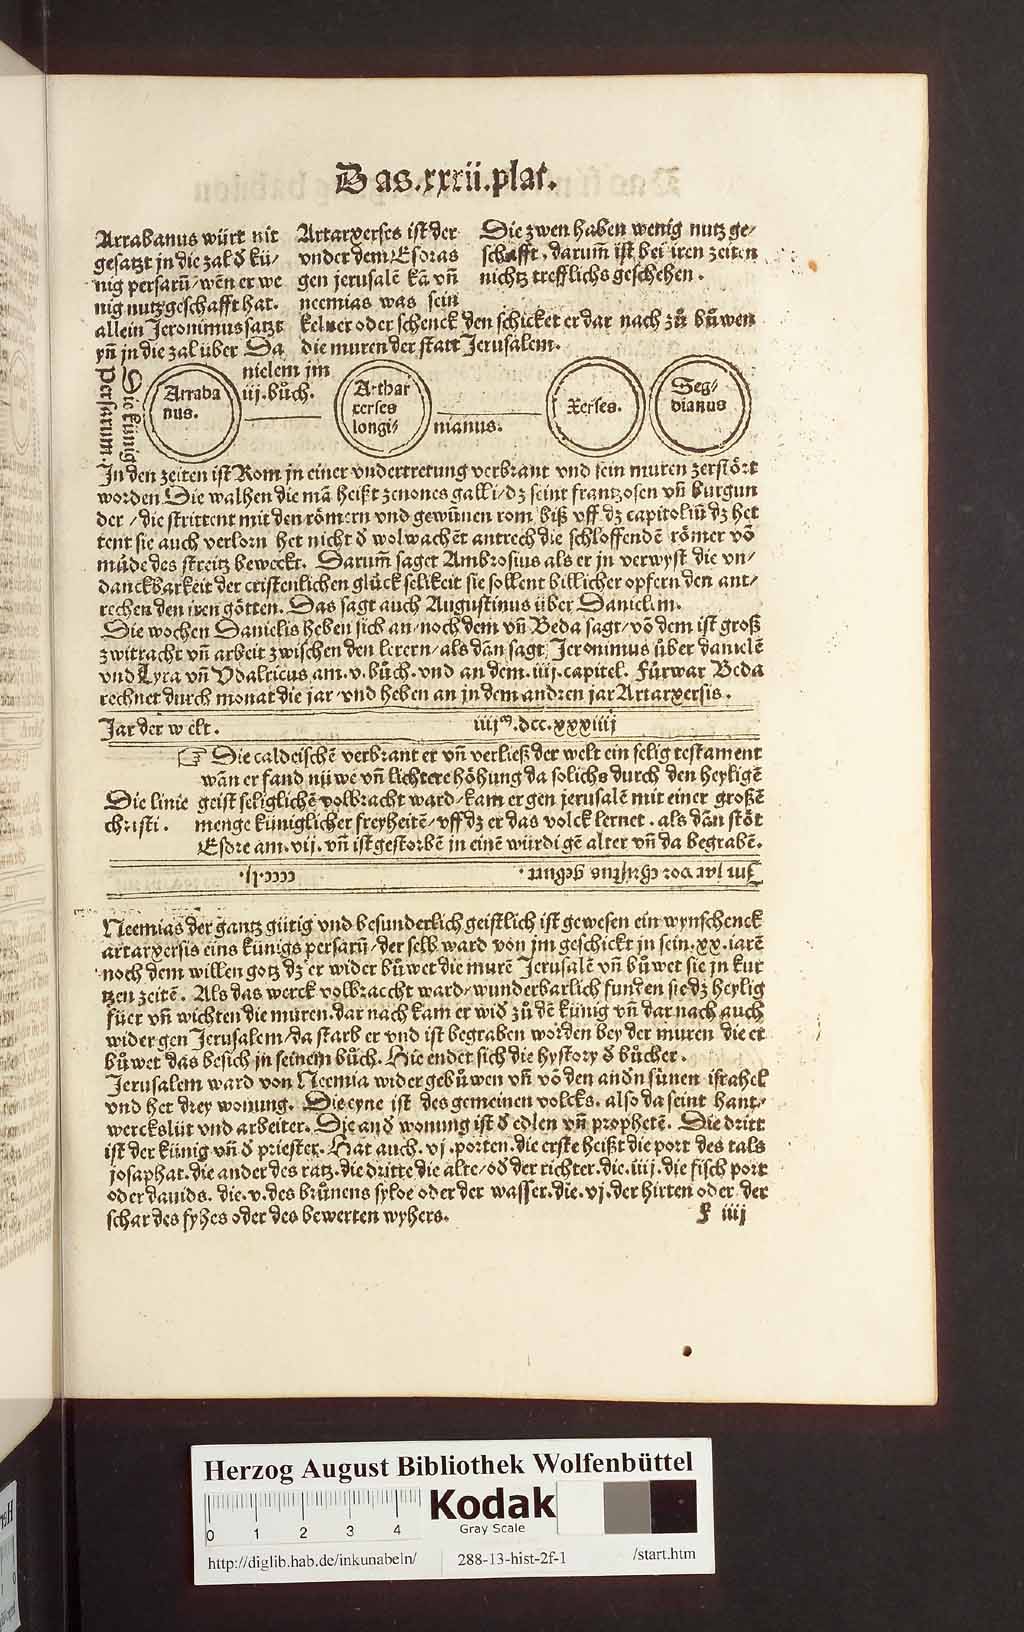 Das.xxxii.plat.
Arrabanus würt nit
gesatzt jn die zal d̕ kü/
nig persarū/wēn er we
nig nutz geschafft hat.
allein Jeronimus satzt
yn̄ jn die zal über Da
nielem jm
iij.bůch.
Artarxerses ist der
vnder dem Esdras
gen jerusalē kā vn̄
neemias was sein
kelner oder schenck den schicket er dar nach zů bůwen
die muren der statt Jerusalem.
Die zwen haben wenig nutz ge/
schafft, darum̄ ist bei iren zeiten
nichtz trefflichs geschehen.
Die künig
Persarum.
Arraba
nus.
Arthar
xerses
longi/
manus.
Xerses.
Seg/
dianus
In den zeiten ist Rom jn einer vndertretung verbrant vnd sein muren zerstört
worden Die walhen die mā heißt zenones galli/dz seint frantzosen vn̄ burgun
der/die strittent mit den römern vnd gewūnen rom biß vff dz capitoliū dz het
tent sie auch verlorn het nicht d̕ wolwachēt antrech die schloffendē römer vō
müde des streitz beweckt. Darum̄ saget Ambrosius als er jn verwyst die vn/
danckbarkeit der cristenlichen glückselikeit sie sollent billicher opfern den ant/
rechen den iren götten. Das sagt auch Augustinus über Danielem.
Die wochen Danielis heben sich an/noch dem vn̄ Beda sagt/vō dem ist groß
zwitracht vn̄ arbeit zwischen den lerern/als dan sagt Jeronimus über danielē
vnd Lyra vn̄ Vdalricus am.v.bůch.vnd an dem.iiij.capitel. Fürwar Beda
rechnet durch monat die jar vnd heben an jn dem andren jar Artarxersis.
Jar der welt. iiijᵐ.dcc.xxxiiij
☞ Die caldeischē verbrant er vn̄ verließ der welt ein selig testament
wān er fand nüwe vn̄ lichtere höhung da solichs durch den heyligē
Die linie geist seliglichē volbracht ward/kam er gen jerusalē mit einer großē
christi. menge küniglicher freyheitē/vff dz er das volck lernet. als dān stöt
Esdre am.vij. vn̄ ist gestorbē in einē würdigē alter vn̄ da begrabē.
Im iar vor christus geburt. cccc.lj.
Neemias der gantz gütig vnd besunderlich geistlich ist gewesen ein wynschenck
artarxersis eins künigs persarū/der selb ward von jm geschickt jn sein.xx.iarē
noch dem willen gotz dz er wider bůwet die murē Jerusalē vn̄ bůwet sie jn kur
tzen zeitē. Als das werck volbraccht ward/wunderbarlich funden sie dz heylig
füer vn̄ wichten die muren.dar nach kam er wid̕ zů dē künig vn̄ dar nach auch
wider gen Jerusalem/da starb er vnd ist begraben worden bey der muren die er
bůwet das besich jn seinem bůch. Hie endet sich die hystory d̕ bůcher.
Jerusalem ward von Neemia wider gebůwen vn̄ vō den and̕n sünen israhel
vnd het drey wonung. Die eyne ist des gemeinen volcks. also da seint hant/
wercksliit vnd arbeiter. Die and̕ wonung ist d̕ edlen vn̄ prophetē. Die dritt
ist der künig vn̄ d̕ priester. Hat auch.vj.porten.die erste heißt die port des tals
josaphat.die ander des ratz.die dritte die alte/od̕ der richter.die.iiij.die fisch port
oder dauids. die.v.des brůnens syloe oder der wasser.die.vj.der hirten oder der
schar des fyhes oder des bewerten wyhers. f iiij
Herzog August Bibliothek Wolfenbüttel
0 1 2 3 4
Kodak
Gray Scale
http://diglib.hab.de/inkunabeln/ 288-13-hist-2f-1 /start.htm